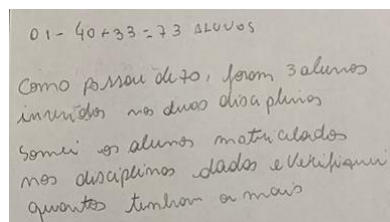 01 - 40 + 33 = 73 ALUNOS
Como passou de 70, foram 3 alunos
inseridos nas duas disciplinas
Somei os alunos matriculados
nas disciplinas dadas e verifiquei
quantos tinham a mais